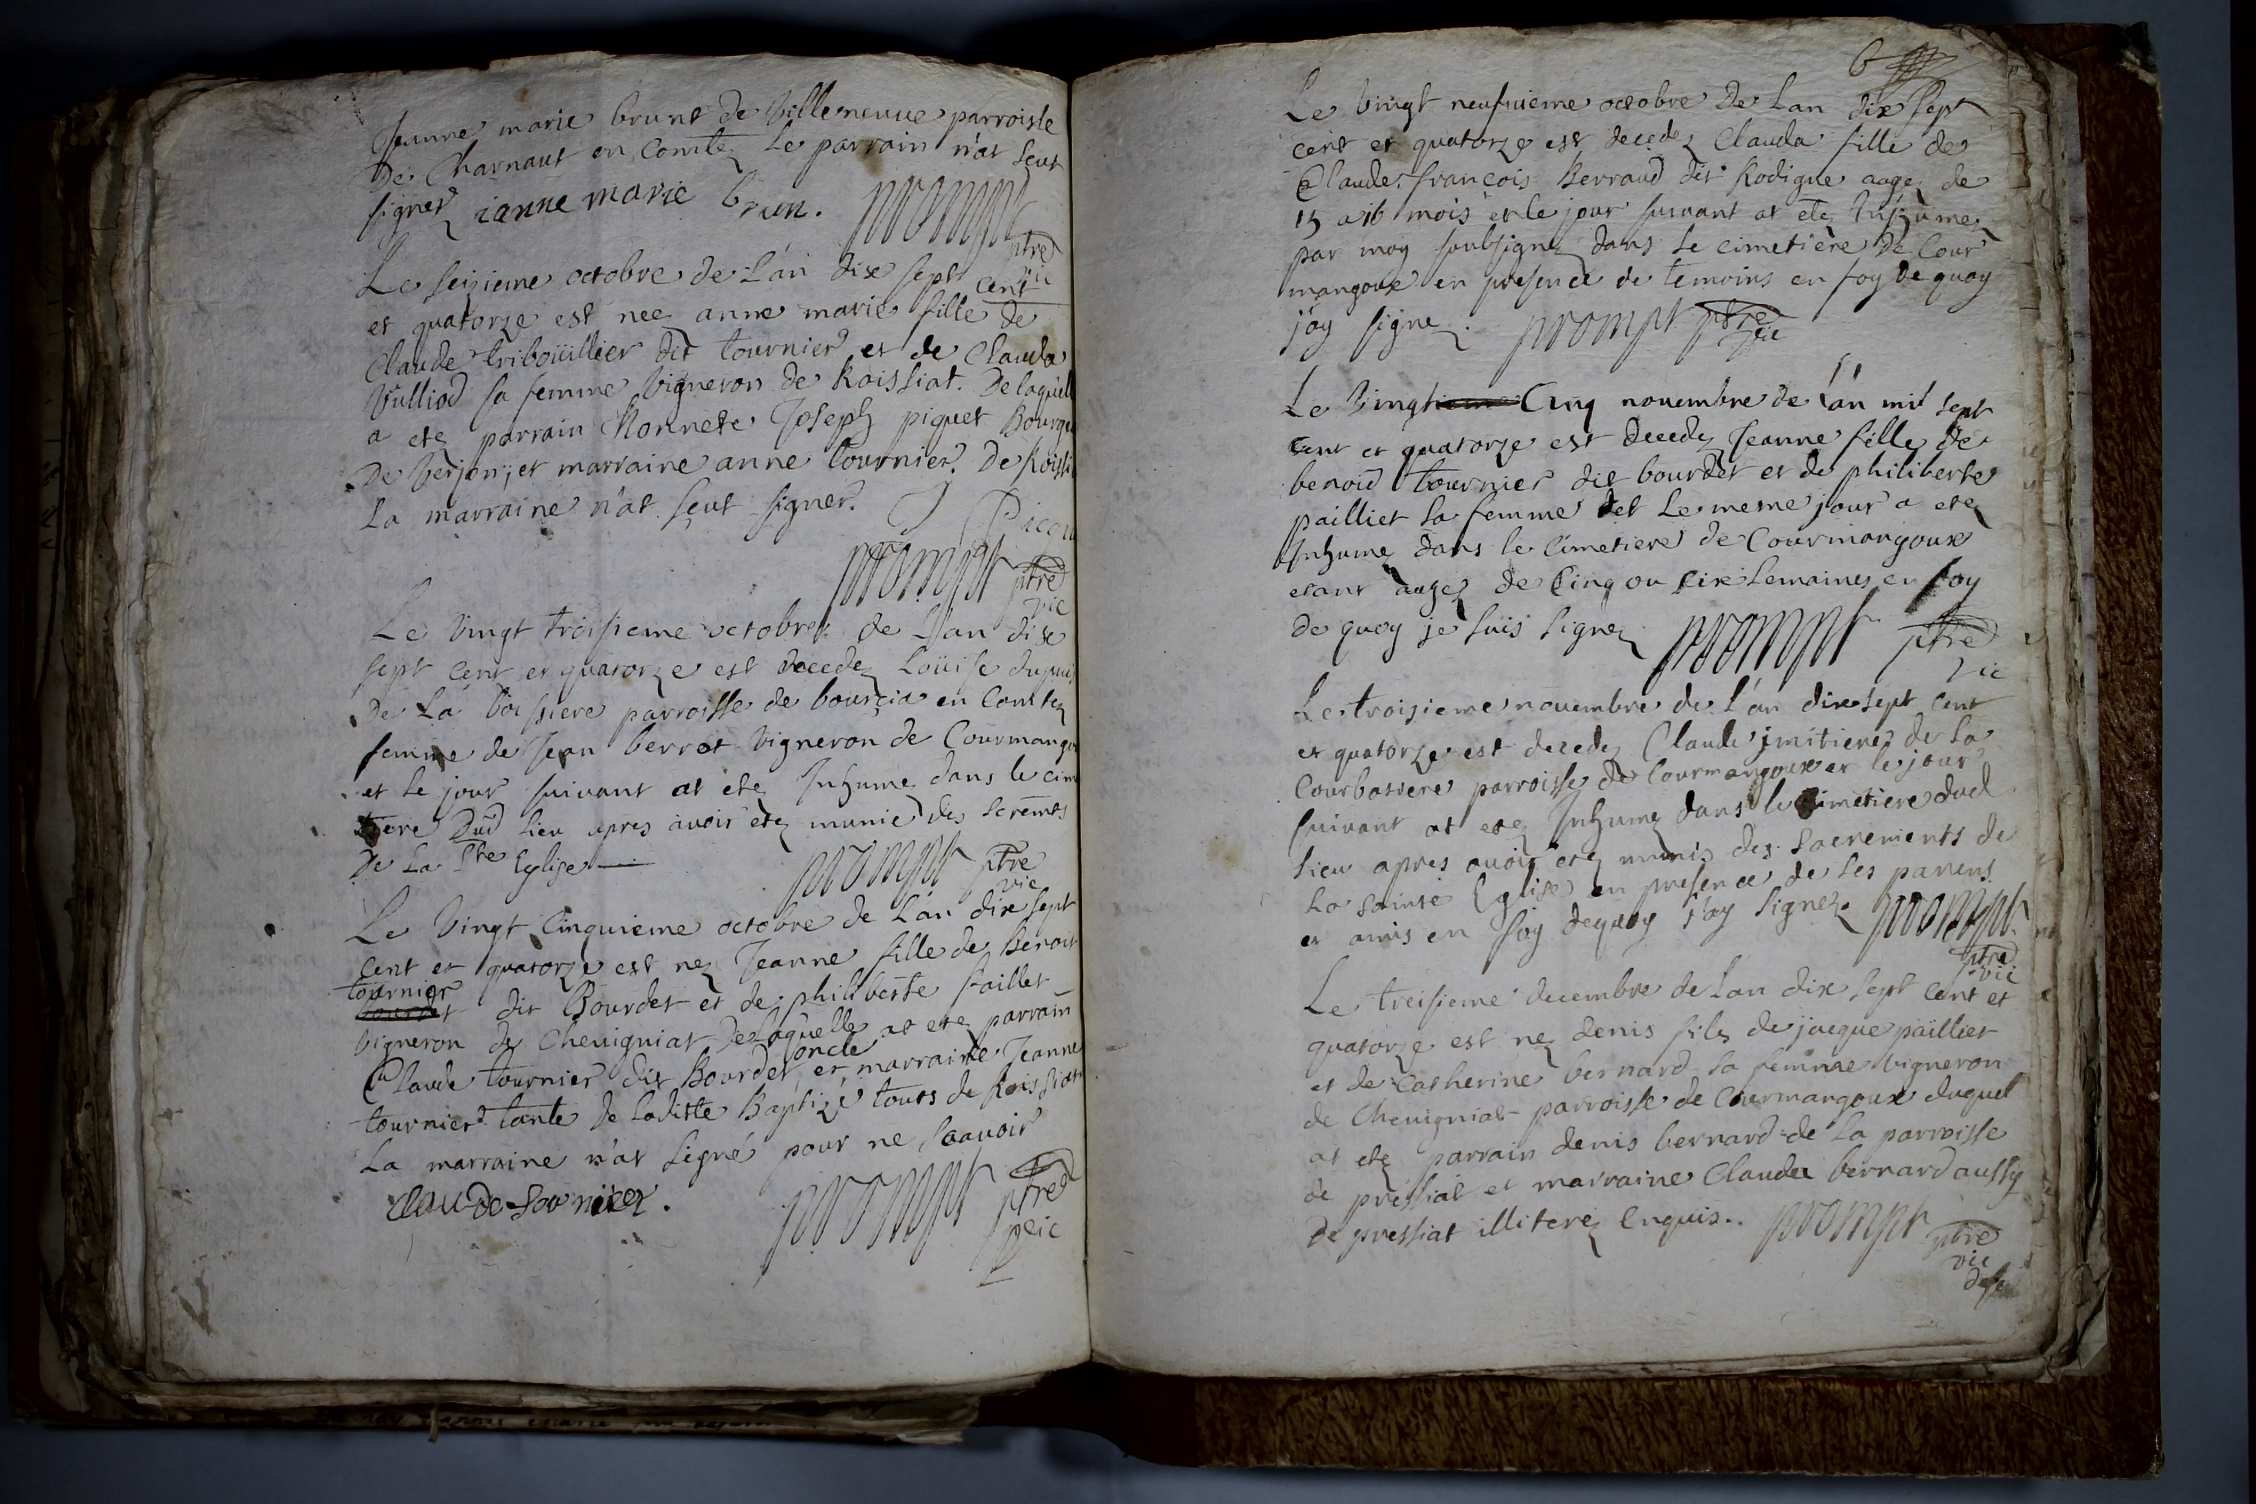 Jeanne marie brunt de Villeneuue parroisse
De Charnaut en Comtez Le parrain n'at Seut
signer ianne marie brun. prompt
ptre vic
Le seizieme octobre de L'an dix sept cent
et quatorze est nee anne marie fille de
Claude triboüillier dit tournier et de Clauda
Vulliod sa femme Vigneron de Roissiat. De laquell
a etez parrain Honnete Joseph piquet Bourge
De Verjon, et marraine anne tournier. De Roissi
La marraine n'at sçut signer.
prompt ptre
vic
Le Vingt troisieme octobre de L'an dix
sept cent et quatorze est decedez Loüise dupuis
De La boissiere parroisse de bourcia en Comtez
femme de Jean berrot Vigneron de Courmangou
et Le jour suivant at etez Inhumez dans le cim
tiere Dud lieu apres avoir etez munie des Scremts
De La Ste Eglise
prompt ptre
vic
Le Vingt Cinquieme octobre de L'an dix sept
cent et quatorze est nez Jeanne fille de Benoit
tournier
dit Bourdet et de philiberte paillet
Vigneron de Cheuigniat De laquelle at etez parrain
oncle
Claude tournier dit Bourdet et marraine Jeanne
tournier tante De laditte Baptizé touts de Roissiat
La marraine n'at Signé pour ne Scauoir
claude tournier. prompt ptre
vic
6
Le Vingt neufuieme octobre De Lan dix sept
cent et quatorze est decedez Clauda fille de
Claude françois Berraud dit Rodigue aagez de
15 a 16 mois et le jour suivant at etez Inhumez
par moy soubsignez dans Le cimetiere De Cour
mangoux en presence de temoins en foy De quoy
j'ay signez. prompt ptre
vic
Le Vingt Cinq nouembre de L'an mil sept
cent et quatorze est decedez Jeanne fille de
benoid tournier dit bourdet et de philiberte
pailliet sa femme et Le meme jour a etez
Inhumez dans le Cimetiere de Courmangoux
etant aagez de Cinq ou six Semaines en foy
De quoy je suis signez prompt ptre
vic
Le troisieme nouembre de L'an dix sept cent
et quatorze est decedez Claude jmitiere de La
Courbatiere parroisse de Courmangoux et le jour
suivant at etez Inhumez dans le Cimetiere dud
lieu apres auoir etez munis des Sacrements de
La Sainte Eglise en presence de ses parens
et amis en foy dequoy j'ay Signez. prompt
ptre
vic
Le treisieme decembre de Lan dix sept cent et
quatorze est nez denis fils de jacque pailliet
et de Catherine bernard sa femme vigneron
de Cheuigniat parroisse de Courmangoux duquel
at etez parrain denis bernard de La parroisse
de pressiat et marraine Clauda bernard aussy
De pressiat illiterez Enquis. prompt ptre
vic